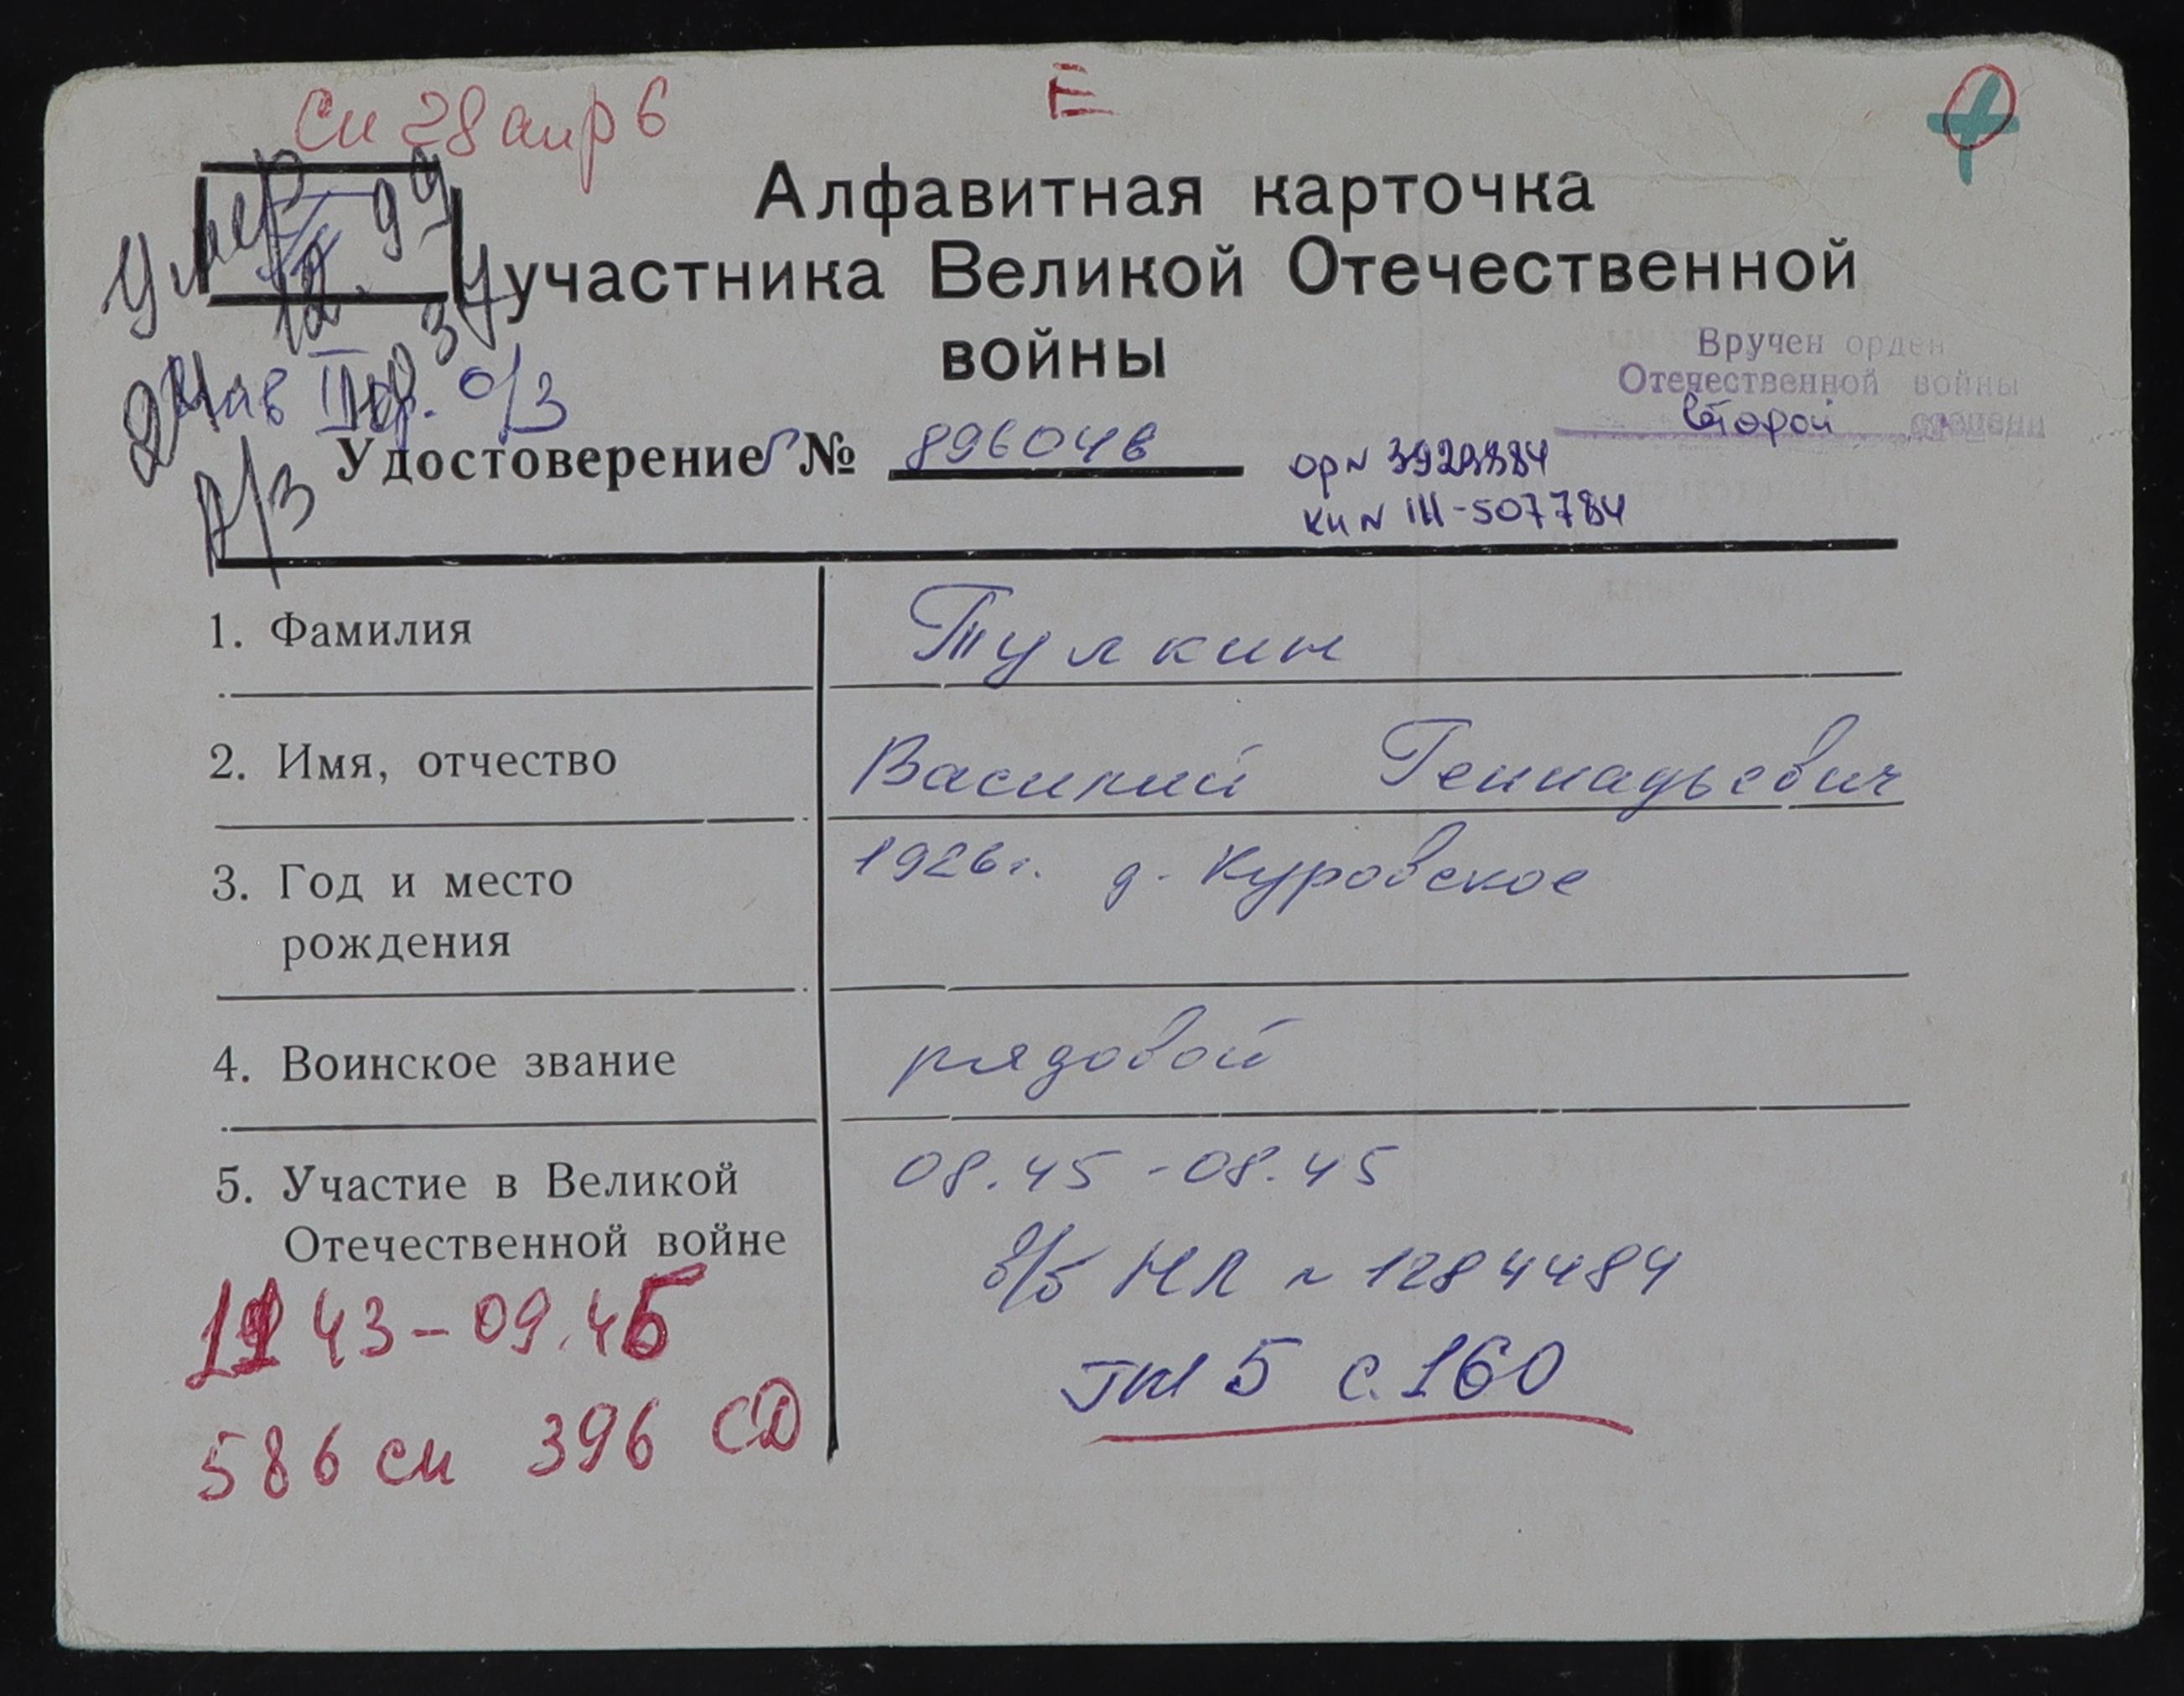 Си 28 апр 6
Е
Алфавитная карточка
участника Великой Отечественной
войны
Умер
12. 99
Вручен орден
Отечественной войны
второй степени
Удостоверение № 896048
ор N 3929884
кн N III-507784
А/З
1. Фамилия Тулкин
2. Имя, отчество Василий Геннадьевич
3. Год и место рождения 1926г. д. Куровское
4. Воинское звание рядовой
5. Участие в Великой 08.45 - 08.45
Отечественной войне в/б НЛ N 1284484
11 43 - 09.45
с. 160
586 сп 396 СД